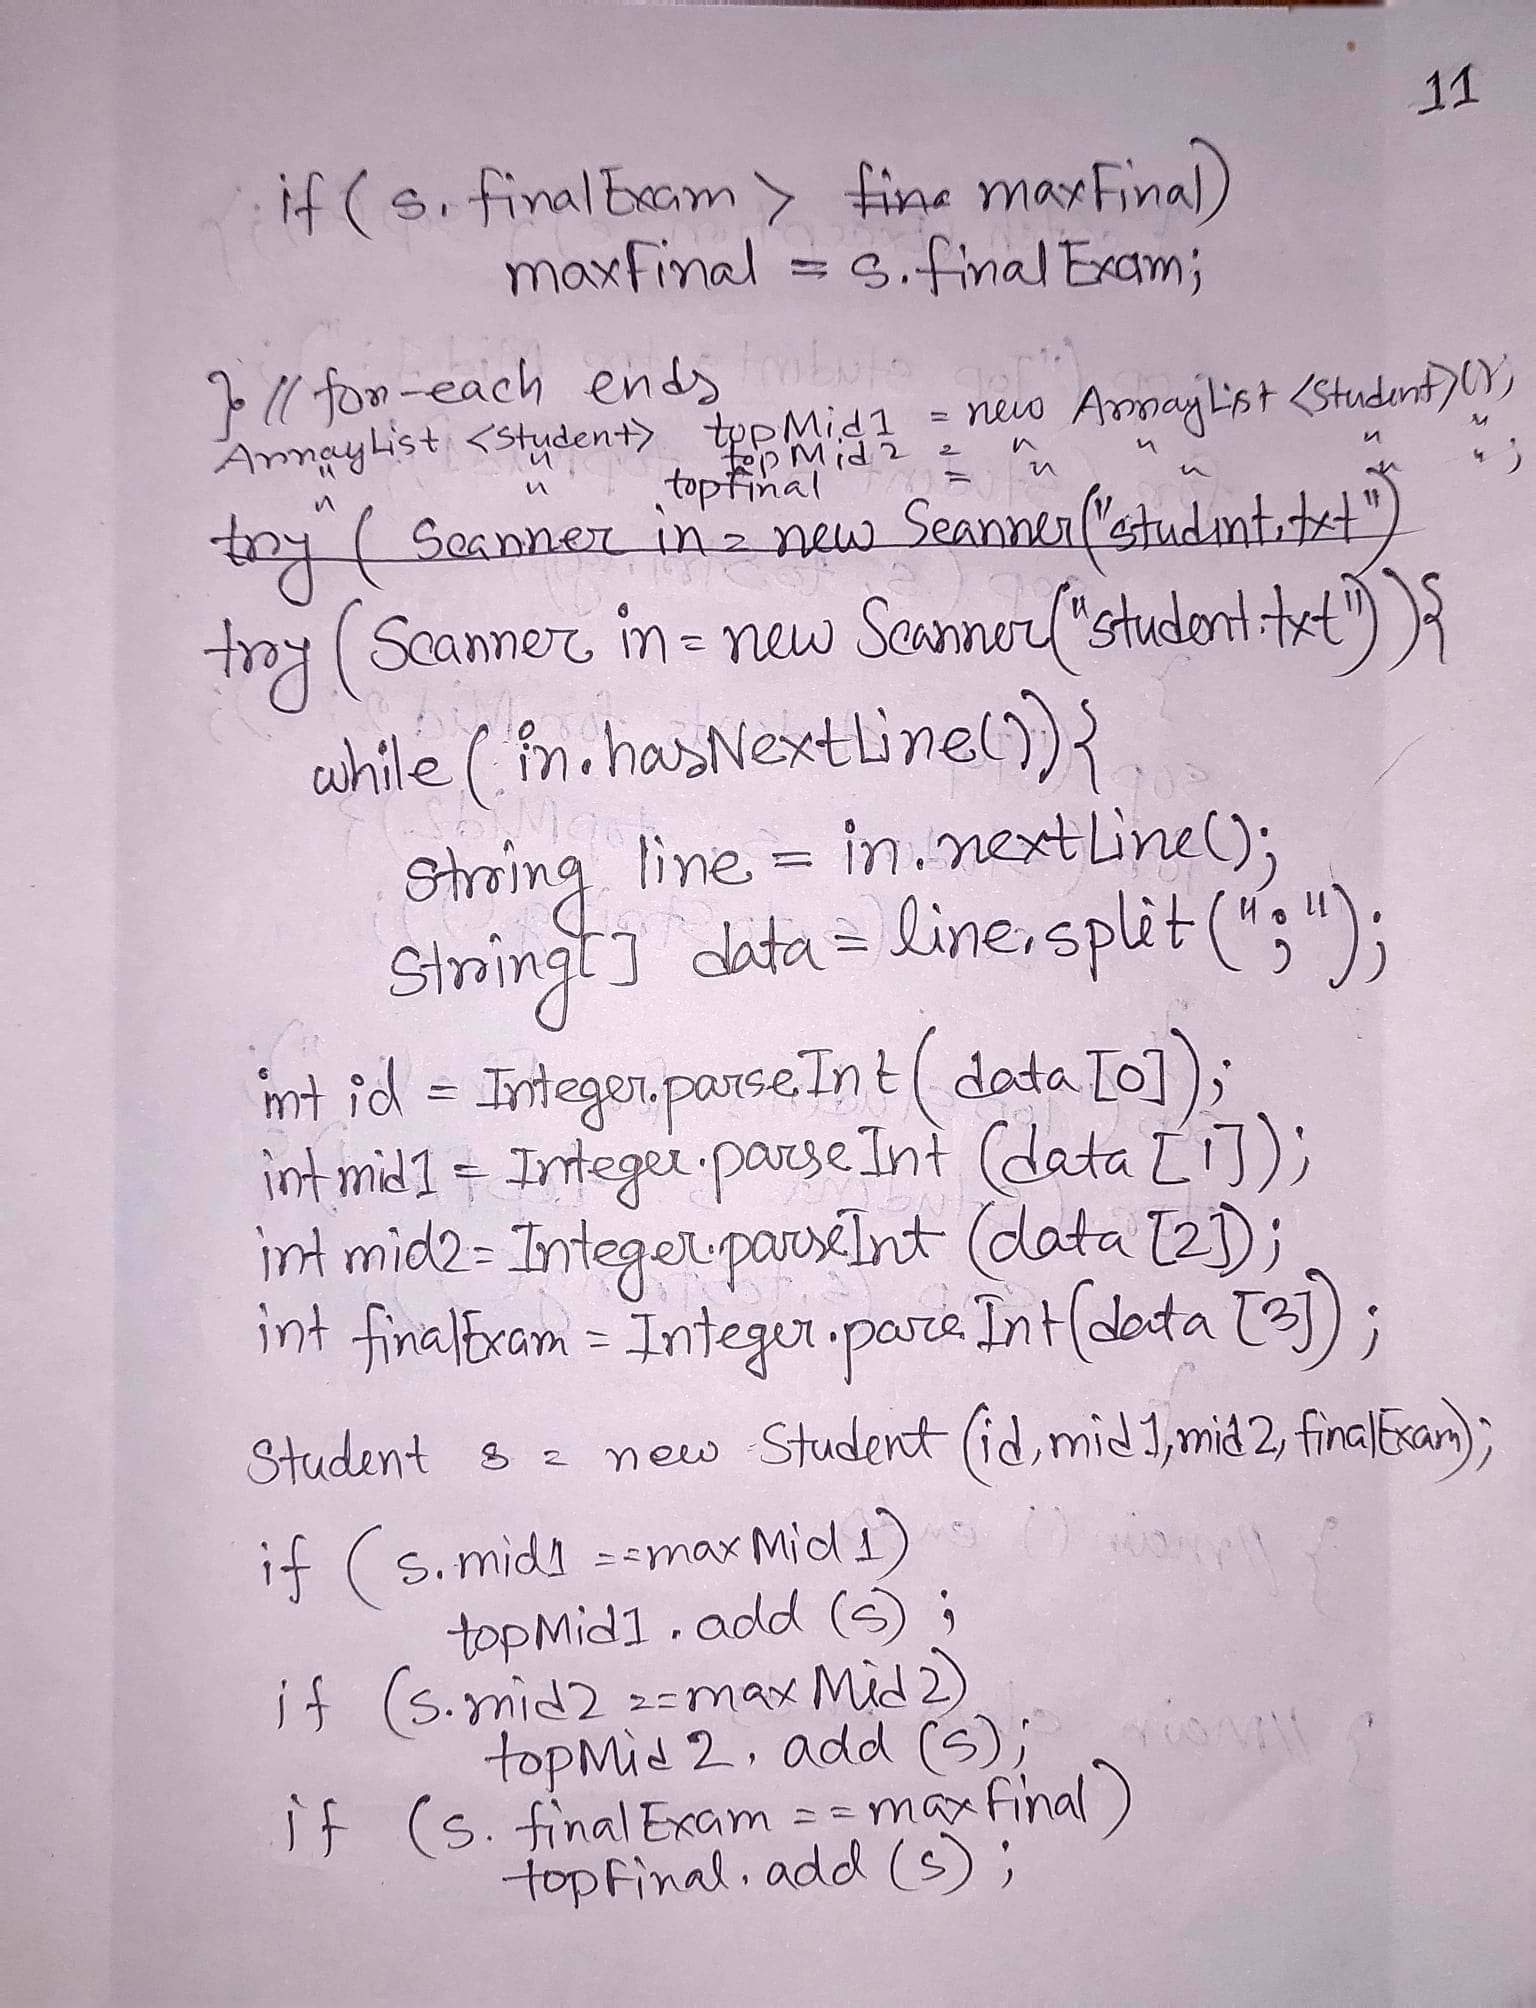 11
if ( s. finalExam > fina maxFinal)
maxFinal = s. final Exam;
} // for-each ends
ArrayList <Student> topMid1 = new ArrayList <Student>();
" " topMid2 = " " " " ;
" " topfinal = " " " " ;
try ( Scanner in = new Scanner("student.txt")
try (Scanner in = new Scanner("student.txt")){
while ( in.hasNextLine()){
String line = in.nextLine();
String[] data = line.split(";");
int id = Integer.parseInt( data [0]);
int mid1 = Integer.parseInt (data [1]);
int mid2 = Integer.parseInt (data [2]);
int finalExam = Integer.pareInt(data [3]);
Student s = new Student (id, mid1, mid2, finalExam);
if ( s.mid1 == maxMid1)
topMid1 . add (s) ;
if (s.mid2 == max Mid2)
topMid2. add (s);
if (s. finalExam == maxFinal)
topFinal. add (s) ;